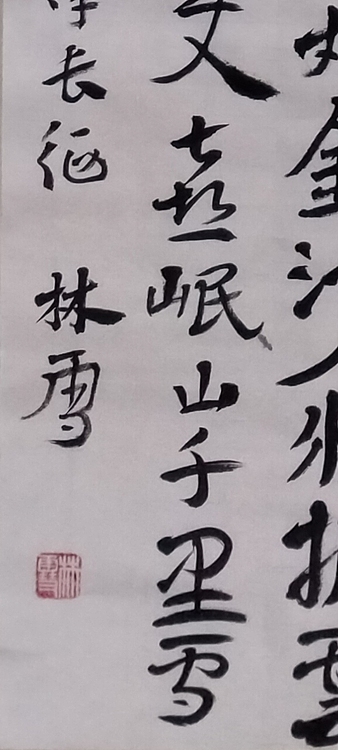 丸金沙水拍雲
更喜岷山千里雪
律长征
林雪
林雪